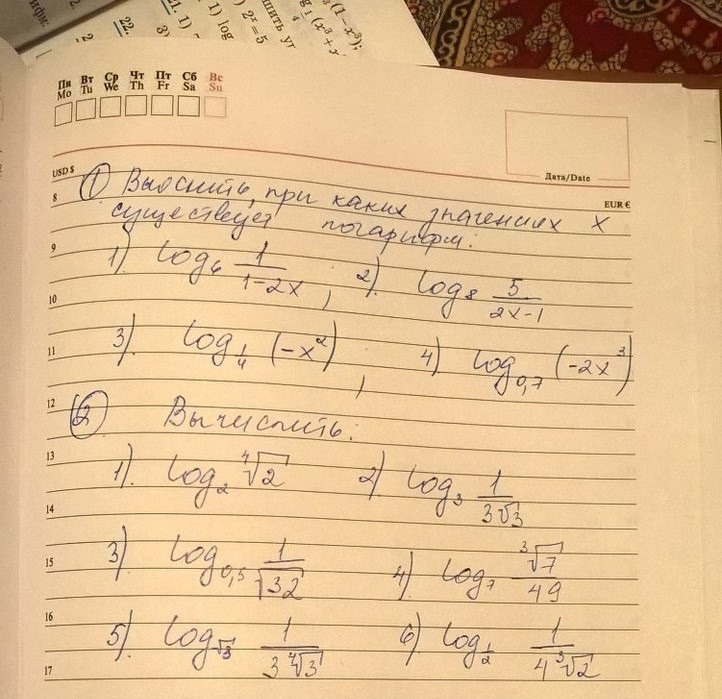 21. 1)
22.
1) log
3)
2ˣ = 5
2.
Пн Вт Ср Чт Пт Сб Вс
Mo Tu We Th Fr Sa Su
Дата/Date
USD $
EUR €
8
① Выяснить, при каких значениях x
существует логарифм:
9
1) log₆ 1/(1-2x) ; 2) log₈ 5/(2x-1)
10
11
3) log_{1/4} (-x²) ; 4) log_{0,7} (-2x³)
12
② Вычислить:
13
1) log₂ ⁴√2 2) log₃ 1/(3√3)
14
15
3) log_{0,5} 1/√32 4) log₇ ³√7/49
16
5) log_{√3} 1/(3 ⁴√3) 6) log_{1/2} 1/(4 ³√2)
17